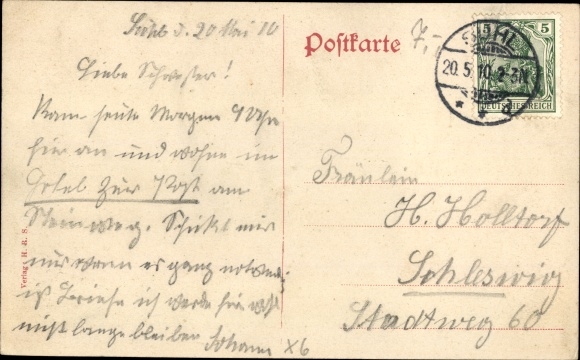 Suhl d. 20 Mai 10
Liebe Schwester!
Kam heute Morgen 9 Uhr
hier an und wohne im
Hotel zur Post am
Steinweg. Schickt mir
nur wenn es ganz notwendig
ist Briefe ich werde hier wohl
nicht lange bleiben
Johann X6
Verlag: H. R. S.
Postkarte
7,-
SUHL
20.5.10. 2-3N
5
DEUTSCHES REICH
Fräulein
H. Holltorf
Schleswig
Stadtweg 60